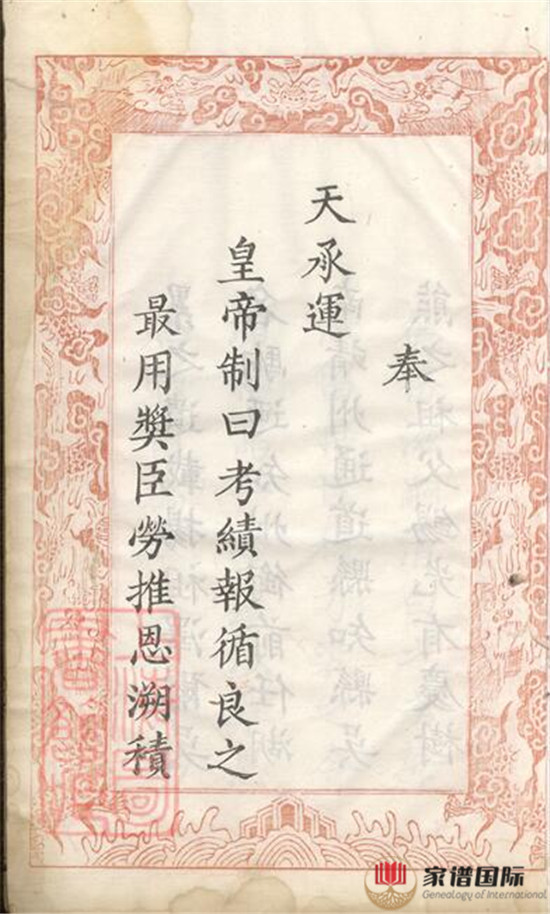 奉
天承運
皇帝制曰考績報循良之
最用獎臣勞推恩溯積
家谱国际
Genealogy of International